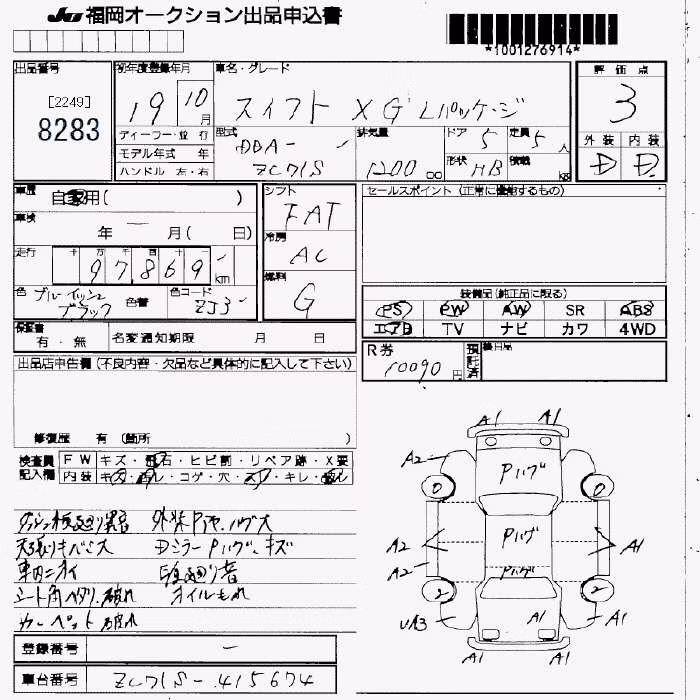 JU 福岡オークション出品申込書
*1001276914*
出品番号 初年度登録年月 車名・グレード 評価点
[2249]
8283
19 10月 スイフト XG Lパッケージ 3
ディーラー・並行 型式 排気量 ドア 定員 外装 内装
モデル年式 年 DBA- 5 5人 D D
ハンドル 左・右 ZC71S 1200cc 形状 HB 積載 kg
車歴 自家用( ) シフト セールスポイント (正常に機能するもの)
FAT
車検 年 月( 日) 冷房
走行 十 万 千 百 十 AC
97869 km
色 ブルーイッシュブラック 色替 色コード ZJ3 燃料 G
装備品(純正品に限る)
PS PW AW SR ABS
エアB TV ナビ カワ 4WD
保証書 有・無 名変通知期限 月 日
R券 10090円 預託済 後日品
出品店申告欄 (不良内容・欠品など具体的に記入して下さい)
修復歴 有 (箇所 )
検査員 FW キズ・飛石・ヒビ割・リペア跡・X要
記入欄 内装 キズ・コゲ・穴・キレ・
ダッシュ 外装 Pハゲ大
天張りキズ Dミラー Pハゲ、キズ
車内ニオイ
シート角ヘタリ、破れ オイルもれ
カーペット破れ
A1 A1
A2 Pハゲ
0 0
Pハゲ
A2 A1
A2 Pハゲ
2 2
UA3 A1 A1
A1 A1
登録番号 -
車台番号 ZC71S-415674